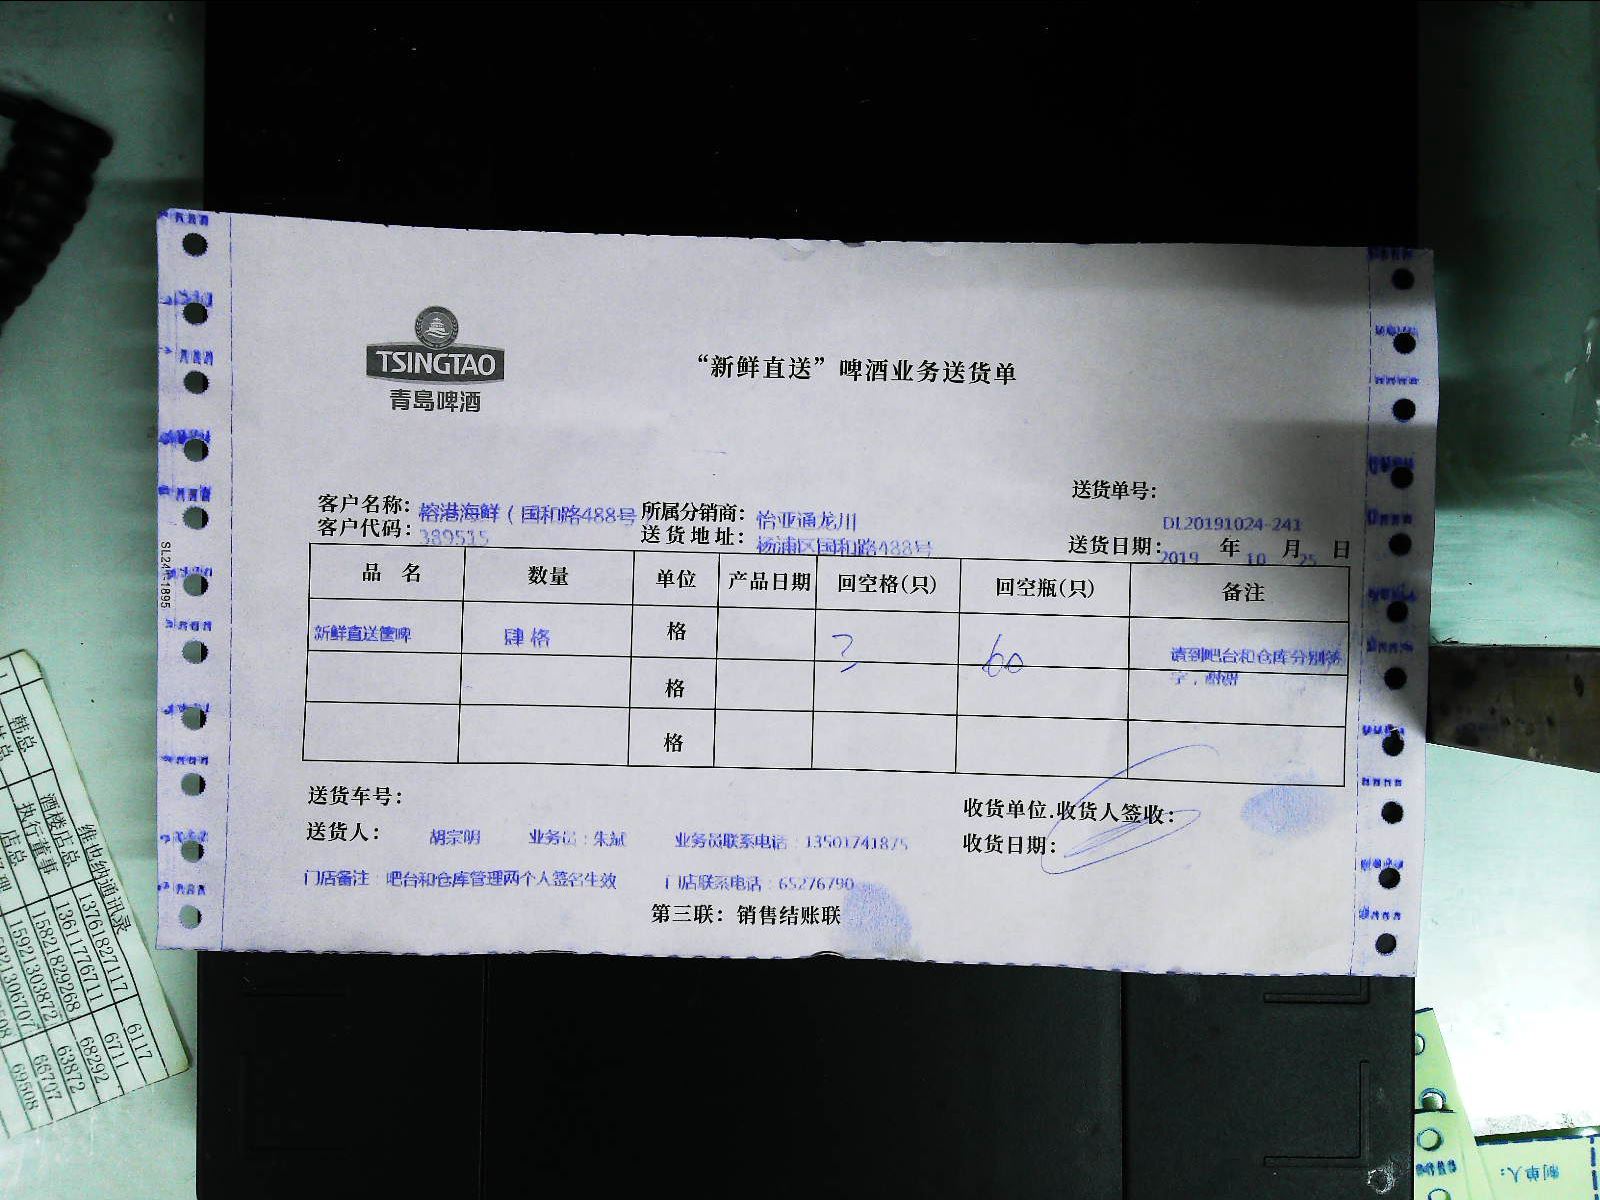 TSINGTAO
青岛啤酒
“新鲜直送”啤酒业务送货单
送货单号：
DL20191024-241
客户名称：榕港海鲜（国和路488号 所属分销商：怡亚通龙川
客户代码：389515 送货地址：杨浦区国和路488号 送货日期：2019 年 10 月 25 日
品 名 数量 单位 产品日期 回空格(只) 回空瓶(只) 备注
新鲜直送 肆格 格 3 60 请到吧台和仓库分别签
字，谢谢
格
格
送货车号：
收货单位.收货人签收：
送货人： 胡宗明 业务员：朱斌 业务员联系电话：13501741875
收货日期：
门店备注：吧台和仓库管理两个人签名生效 门店联系电话：65276790
第三联：销售结账联
韩总
酒楼店总
执行董事
店总
维也纳通讯录
13761827117 6117
13611776711 6711
15821829268 68292
15921303872 63872
66707
69508
制单人：